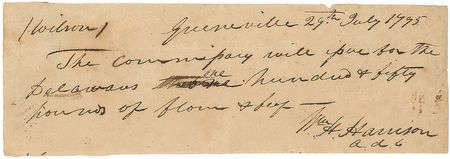 (Wilson) Greeneville 29th July 1795
The commissary will issue for the
Delawares one hundred & fifty
pounds of flour & beef —
Wm H. Harrison
a d c